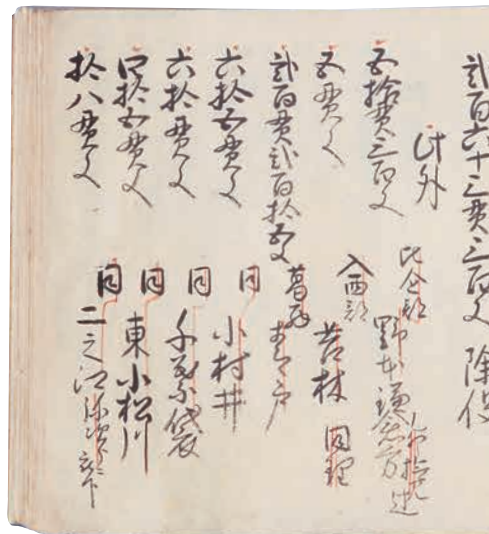 弐百六十三貫三百文 除役
此外
五拾貫三百文 比企郡 野本
五貫文 入西郡 苦林 同理
弐百貫弐百拾五文 葛西 青戸
六拾五貫文 同 小村井
六拾貫文 同 千葉袋
四拾五貫文 同 東小松川
拾八貫文 同 二之江